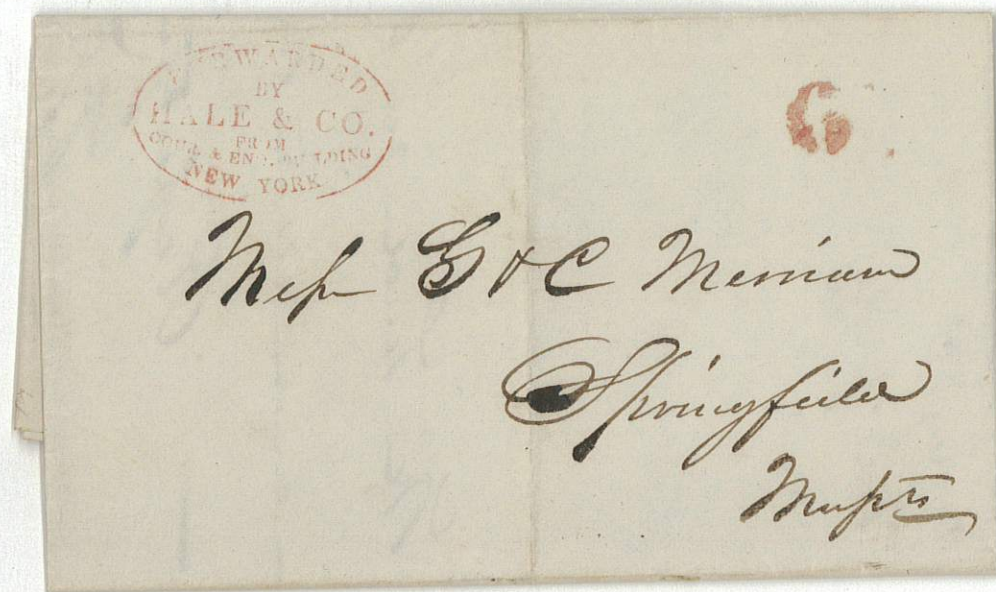 FORWARDED
BY
HALE & CO.
FROM
COUR. & ENQ. BUILDING
NEW YORK
6
Mess G & C Merriam
Springfield
Massts